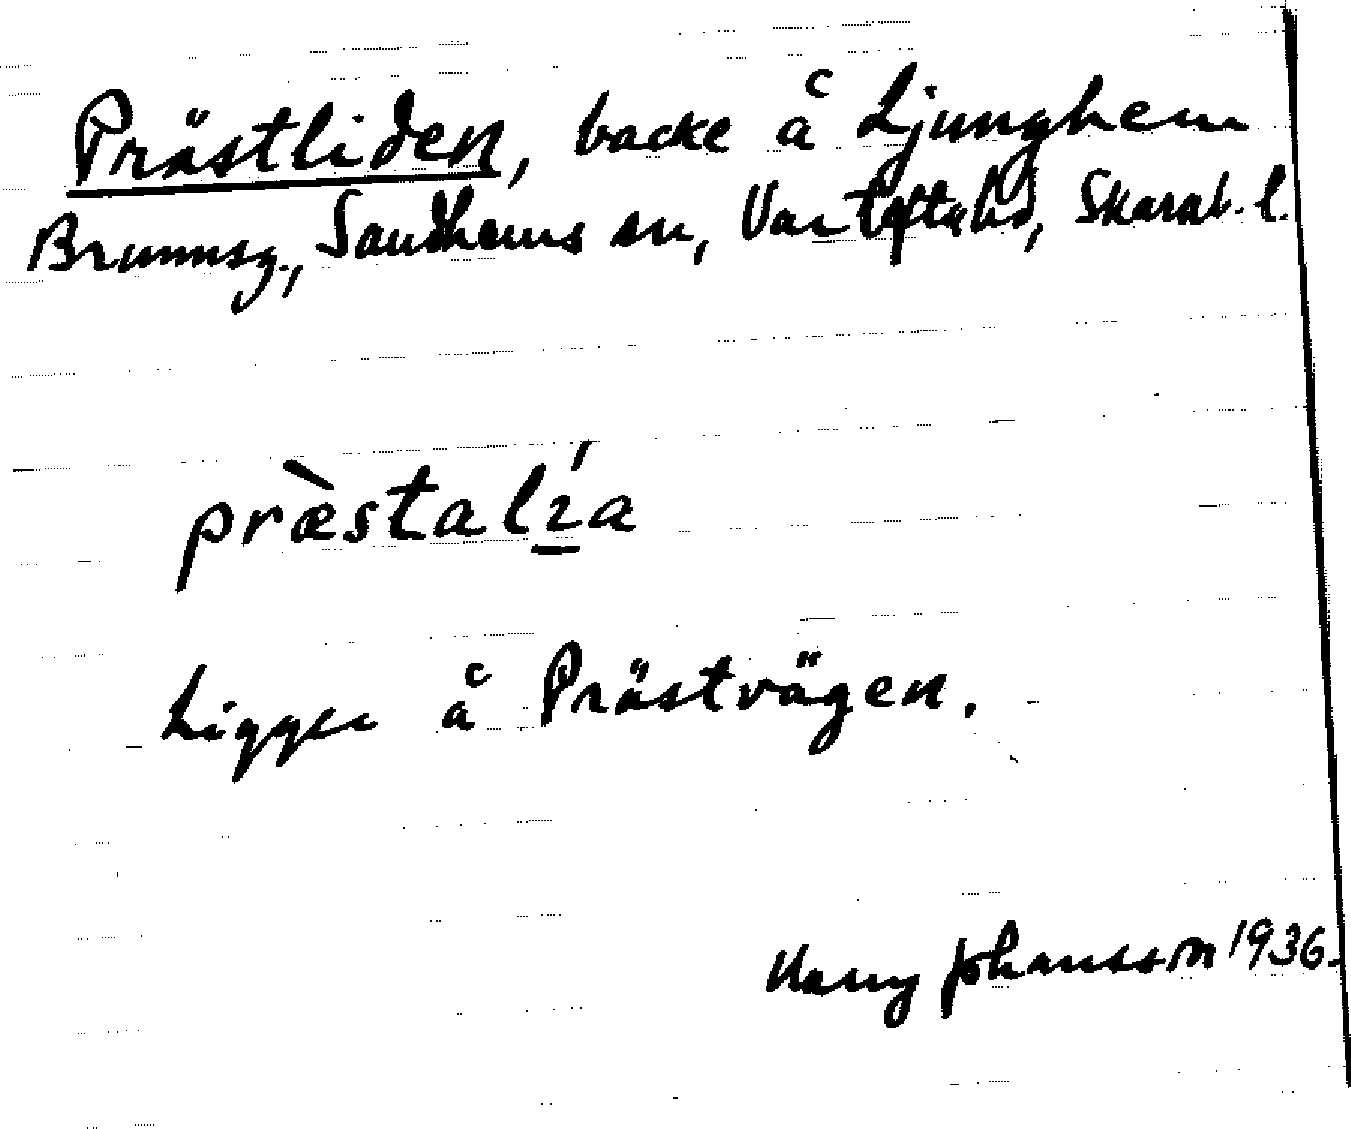 Prästliden, backe å Ljunghem
Brunnsg., Sandhems sn, Vartofta hd, Skarab. l.
præ̀stalí̱a
Ligger å Prästvägen.
Harry Johansson 1936.